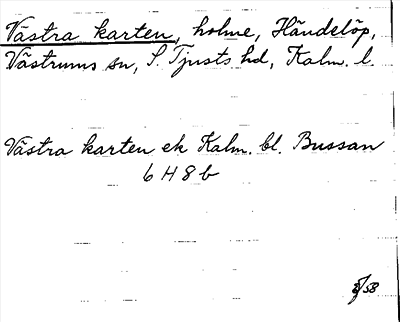 Västra karten, holme, Händelöp,
Västrums sn, S. Tjusts hd, Kalm. l.
Västra karten ek Kalm. bl. Bussan
6 H 8 b